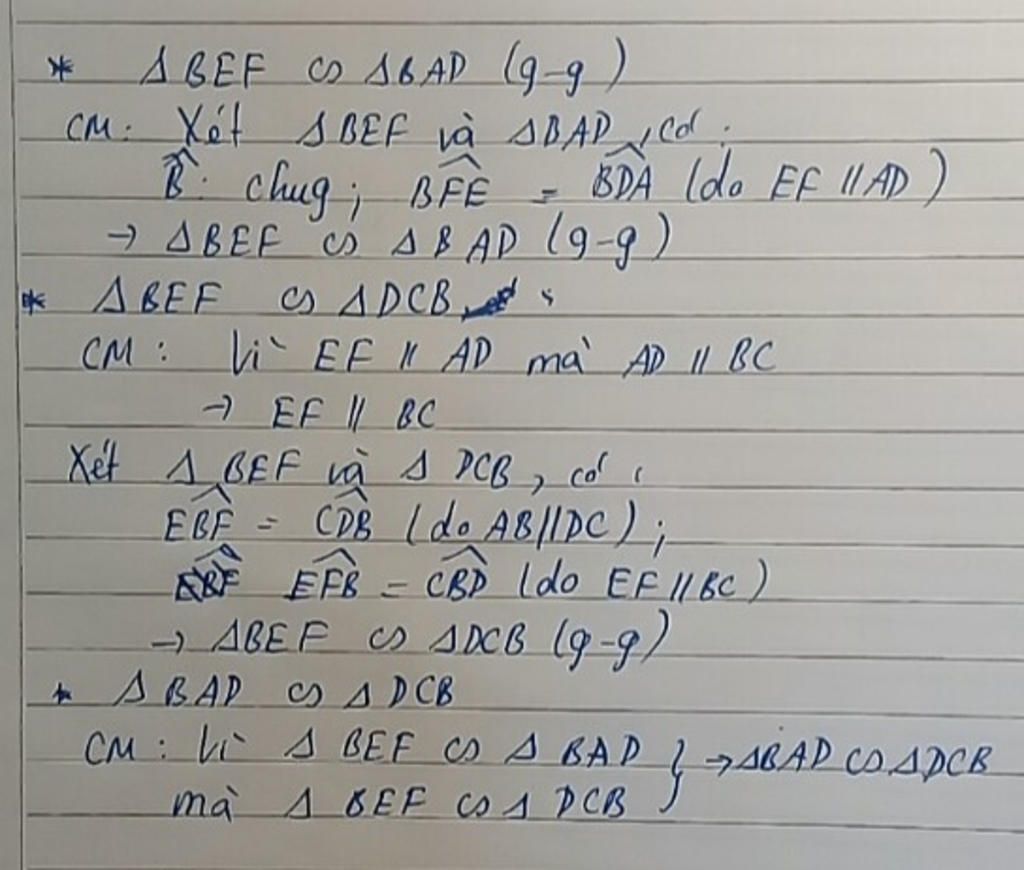 * ΔBEF ∽ ΔBAD (g-g)
CM: Xét ΔBEF và ΔBAD, có:
B̂: chug; BFE = BDA (do EF // AD)
→ ΔBEF ∽ ΔBAD (g-g)
* ΔBEF ∽ ΔDCB :
CM: Vì EF // AD mà AD // BC
→ EF // BC
Xét ΔBEF và ΔDCB, có:
EBF = CDB (do AB//DC);
EFB = CBD (do EF // BC)
→ ΔBEF ∽ ΔDCB (g-g)
* ΔBAD ∽ ΔDCB
CM: Vì ΔBEF ∽ ΔBAD } → ΔBAD ∽ ΔDCB
mà ΔBEF ∽ ΔDCB